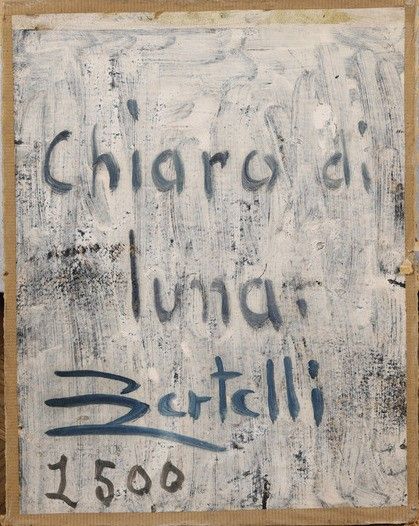 Chiaro di
luna.
Bertelli
1500